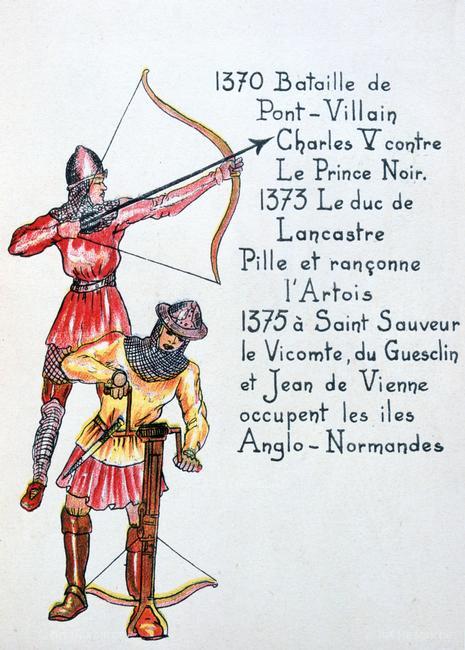 1370 Bataille de
Pont-Villain
Charles V contre
Le Prince Noir.
1373 Le duc de
Lancastre
Pille et rançonne
l'Artois
1375 à Saint Sauveur
le Vicomte, du Guesclin
et Jean de Vienne
occupent les iles
Anglo-Normandes